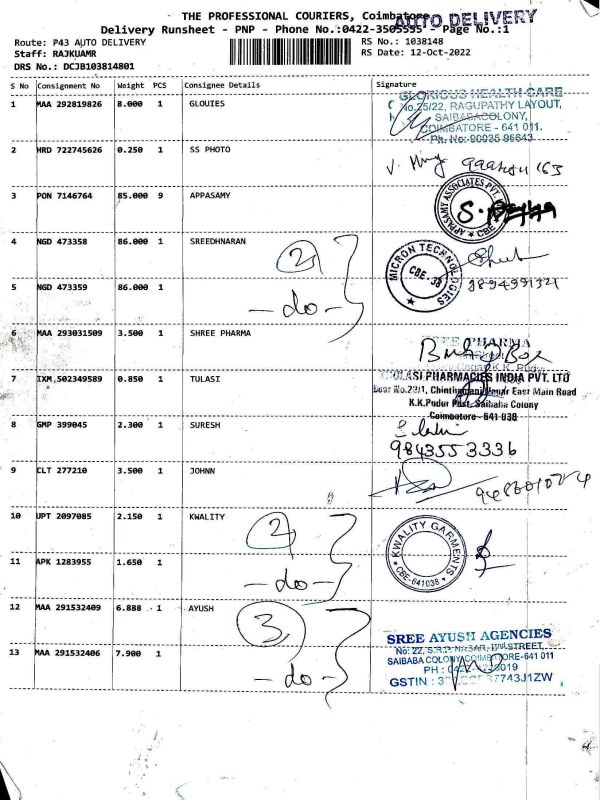 THE PROFESSIONAL COURIERS, Coimbatore
AUTO DELIVERY
Delivery Runsheet - PNP - Phone No.:0422-3505555 - Page No.:1
Route: P43 AUTO DELIVERY
RS No.: 1038148
Staff: RAJKUAMR
RS Date: 12-Oct-2022
DRS No.: DCJB103814801
S No Consignment No Weight PCS Consignee Details Signature
1 MAA 292819826 8.000 1 GLOUIES
GLORIOUS HEALTH CARE
No.25/22, RAGUPATHY LAYOUT,
SAIBABACOLONY,
COIMBATORE - 641 011.
Ph. No:
2 HRD 722745626 0.250 1 SS PHOTO
3 PON 7146764 85.000 9 APPASAMY
APPASAMY ASSOCIATES PVT.
CBE
4 NGD 473358 86.000 1 SREEDHNARAN
2
MICRON TECHNOLOGIES
CBE-38
5 NGD 473359 86.000 1
- do -
6 MAA 293031509 3.500 1 SHREE PHARMA
PHARMA
7 IXM,502349589 0.850 1 TULASI
TULASI PHARMACIES INDIA PVT. LTD
Door No.23/1, Chinthamani Nagar East Main Road
K.K.Pudur Post, Saibaba Colony
Coimbatore - 641 038
8 GMP 399045 2.300 1 SURESH
9843553336
9 CLT 277210 3.500 1 JOHNN
10 UPT 2097085 2.150 1 KWALITY
2
KWALITY GARMENTS
CBE-641038
11 APK 1283955 1.650 1
- do -
12 MAA 291532409 6.888 1 AYUSH
3
SREE AYUSH AGENCIES
No: 22, S.R.P. NAGAR, STREET,
SAIBABA COLONY, COIMBATORE-641 011
PH : 0422
GSTIN :
13 MAA 291532406 7.900 1
- do -